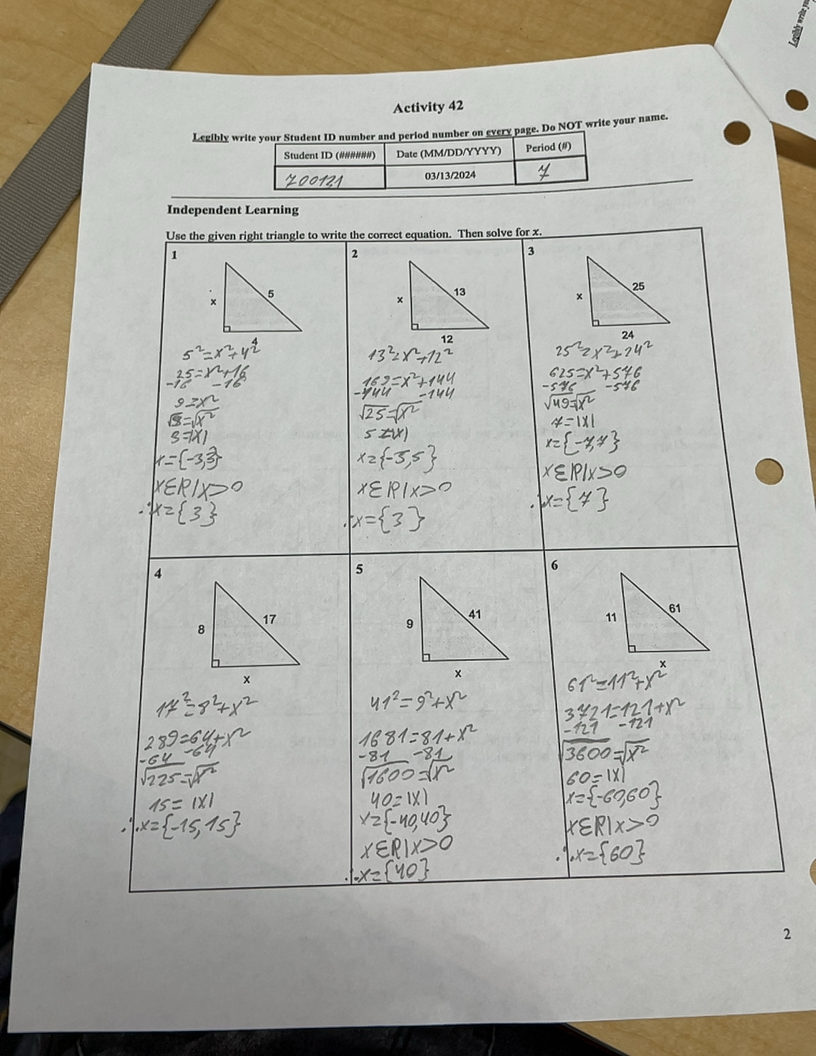 Activity 42
Legibly write your Student ID number and period number on every page. Do NOT write your name.
Student ID (######) Date (MM/DD/YYYY) Period (#)
700121 03/13/2024 7
Independent Learning
Use the given right triangle to write the correct equation. Then solve for x.
1
x 5
4
5²=x²+4²
25=x²+16
-16 -16
9=x²
√9=√x²
3=|x|
x={-3,3}
xεR|x>0
∴x={3}
2
x 13
12
13²=x²+12²
169=x²+144
-144 -144
√25=√x²
5=|x|
x={-5,5}
xεR|x>0
∴x={3}
3
x 25
24
25²=x²+24²
625=x²+576
-576 -576
√49=√x²
7=|x|
x={-7,7}
xεR|x>0
∴x={7}
4
8 17
x
17²=8²+x²
289=64+x²
-64 -64
√225=√x²
15=|x|
∴x={-15,15}
5
9 41
x
41²=9²+x²
1681=81+x²
-81 -81
√1600=√x²
40=|x|
x={-40,40}
xεR|x>0
∴x={40}
6
11 61
x
61²=11²+x²
3721=121+x²
-121 -121
√3600=√x²
60=|x|
x={-60,60}
xεR|x>0
∴x={60}
2
Legibly write